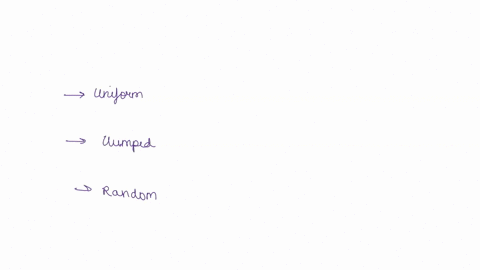 → Uniform
→ Clumped
→ Random